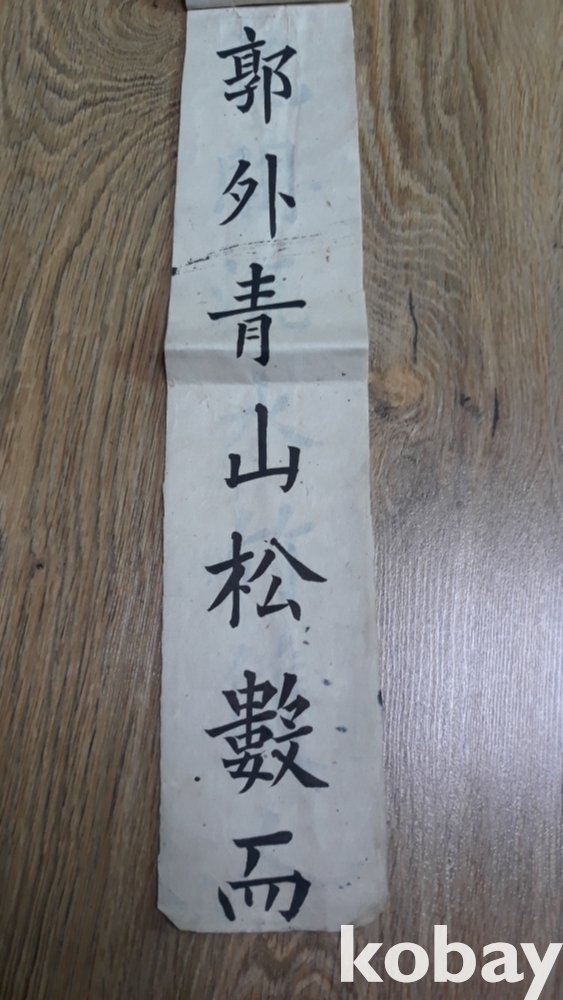 郭外青山松數而
kobay